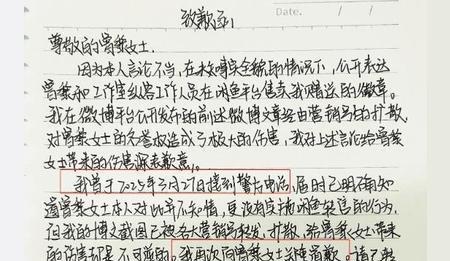 致歉函
Date.
尊敬的曾黎女士.
因为本人言论不当，在未核实全貌的情况下，公开表达
曾黎和工作室纵容工作人员在闲鱼平台售卖我赠送的徽章。
我在微博平台公开发布的前述微博文章经由营销号的扩散，
对曾黎女士的名誉权造成了极大的伤害，我对上述言论给曾黎
女士带来的伤害深表歉意。
我曾于2025年3月27日接到警方电话，届时已明确知
道曾黎女士本人对此事不知情，更没有实施闲鱼转售的行为，
但我的博文截图已被各大营销号转发，扩散，给曾黎女士带来
的伤害却是不可逆的。我再次向曾黎女士诚挚道歉。